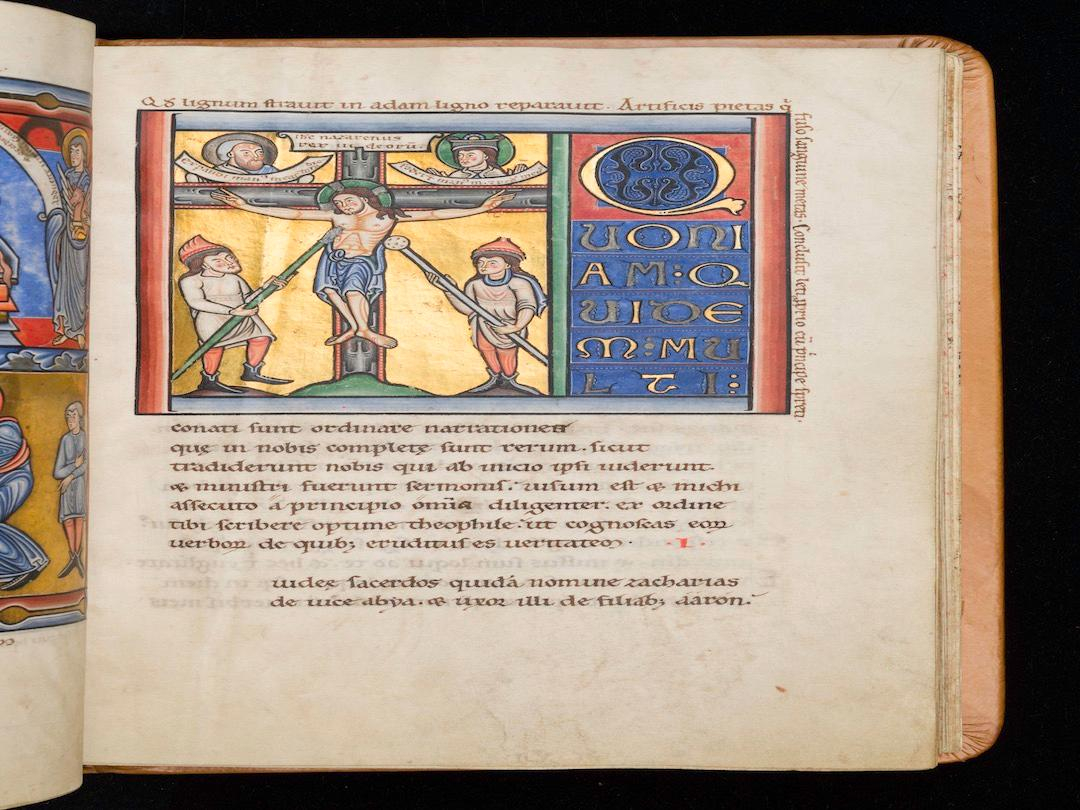 Q͛ lignum strauit in adam ligno reparauit. Artificis pietas q̊
fuso sanguine metas. Conclusit leti
ihc nazarenus
rex iudeorū
QUONI
AM:Q
UIDE
M:MU
LTI:
conati sunt ordinare narrationes
quę in nobis completę sunt rerum. sicut
tradiderunt nobis qui ab inicio ipsi uiderunt.
& ministri fuerunt sermonis. uisum est & michi
assecuto a principio omīa diligenter. ex ordine
tibi scribere optime theophile. ut cognoscas eoꝝ
uerboꝝ de quibꝫ eruditus es ueritatem. .I.
iudeę sacerdos quidā nomine zacharias
de uice abya. & uxor illi de filiabꝫ aaron.